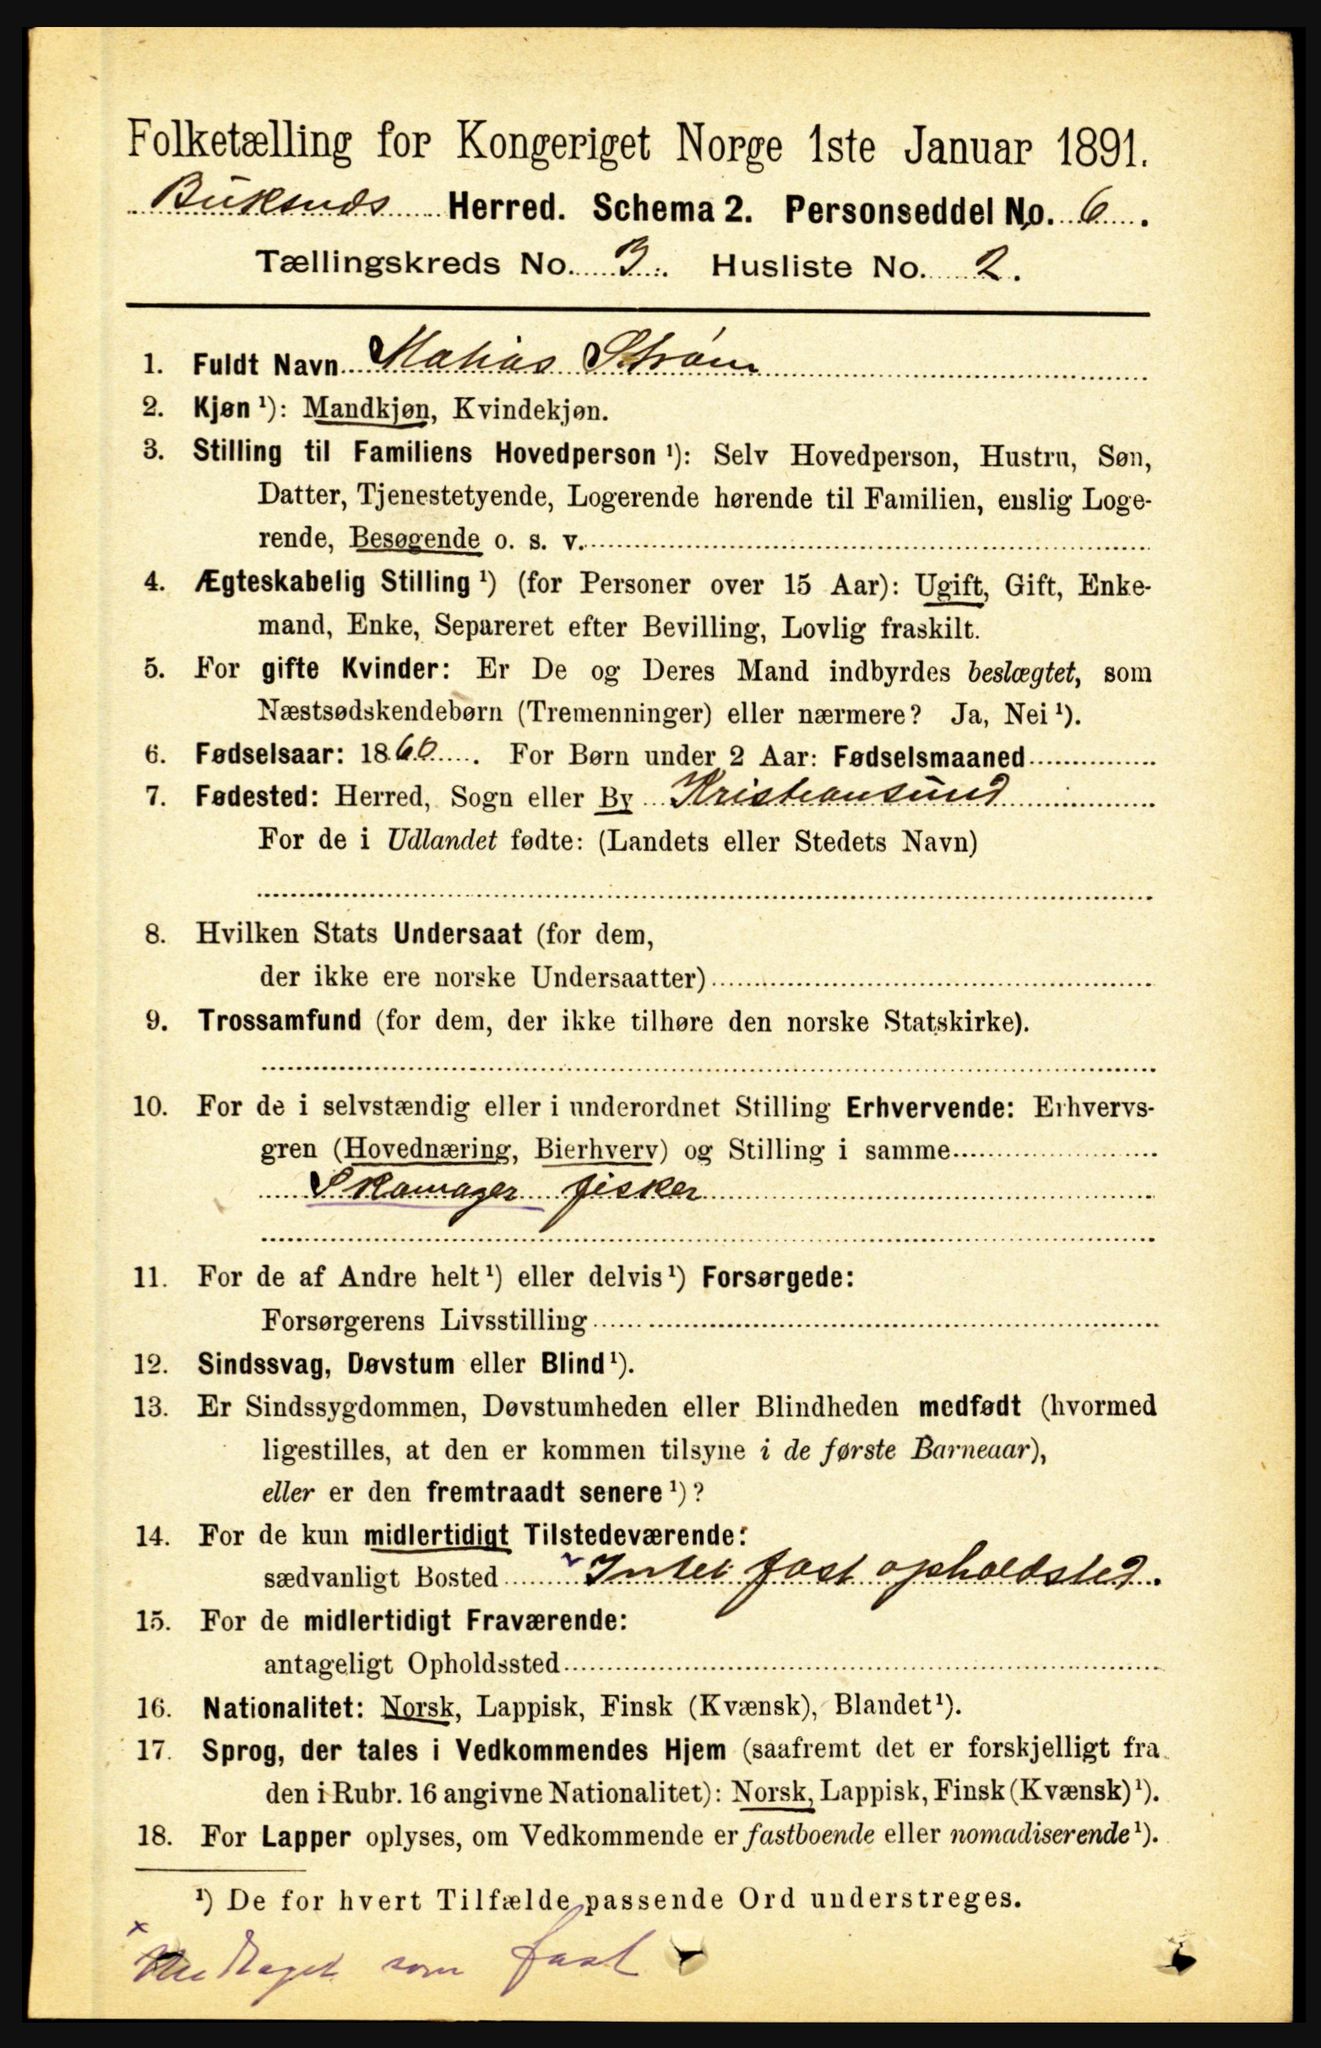 Folketælling for Kongeriget Norge 1ste Januar 1891.
Buksnæs Herred. Schema 2. Personseddel No. 6.
Tællingskreds No. 3. Husliste No. 2.
1. Fuldt Navn Matias Strøm
2. Kjøn ¹): Mandkjøn, Kvindekjøn.
3. Stilling til Familiens Hovedperson ¹): Selv Hovedperson, Hustru, Søn,
Datter, Tjenestetyende, Logerende hørende til Familien, enslig Loge-
rende, Besøgende o. s. v.
4. Ægteskabelig Stilling ¹) (for Personer over 15 Aar): Ugift, Gift, Enke-
mand, Enke, Separeret efter Bevilling, Lovlig fraskilt.
5. For gifte Kvinder: Er De og Deres Mand indbyrdes beslægtet, som
Næstsødskendebørn (Tremenninger) eller nærmere? Ja, Nei ¹).
6. Fødselsaar: 1860. For Børn under 2 Aar: Fødselsmaaned
7. Fødested: Herred, Sogn eller By Kristiansund
For de i Udlandet fødte: (Landets eller Stedets Navn)
8. Hvilken Stats Undersaat (for dem,
der ikke ere norske Undersaatter)
9. Trossamfund (for dem, der ikke tilhøre den norske Statskirke).
10. For de i selvstændig eller i underordnet Stilling Erhvervende: Erhvervs-
gren (Hovednæring, Bierhverv) og Stilling i samme
Skomager fisker
11. For de af Andre helt ¹) eller delvis ¹) Forsørgede:
Forsørgerens Livsstilling
12. Sindssvag, Døvstum eller Blind ¹).
13. Er Sindssygdommen, Døvstumheden eller Blindheden medfødt (hvormed
ligestilles, at den er kommen tilsyne i de første Barneaar),
eller er den fremtraadt senere ¹)?
14. For de kun midlertidigt Tilstedeværende:
sædvanligt Bosted Intet fast opholdsted.
15. For de midlertidigt Fraværende:
antageligt Opholdssted
16. Nationalitet: Norsk, Lappisk, Finsk (Kvænsk), Blandet ¹).
17. Sprog, der tales i Vedkommendes Hjem (saafremt det er forskjelligt fra
den i Rubr. 16 angivne Nationalitet): Norsk, Lappisk, Finsk (Kvænsk) ¹).
18. For Lapper oplyses, om Vedkommende er fastboende eller nomadiserende ¹).
¹) De for hvert Tilfælde passende Ord understreges.
x Medtaget som fast